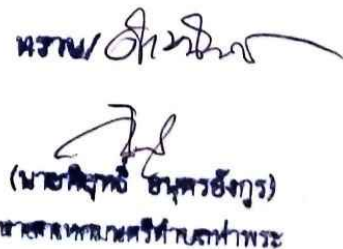 ทราบ/ดำเนินการ
(นายพิสุทธิ์ อนุตรอังกูร)
นายกเทศมนตรีตำบลท่าพระ